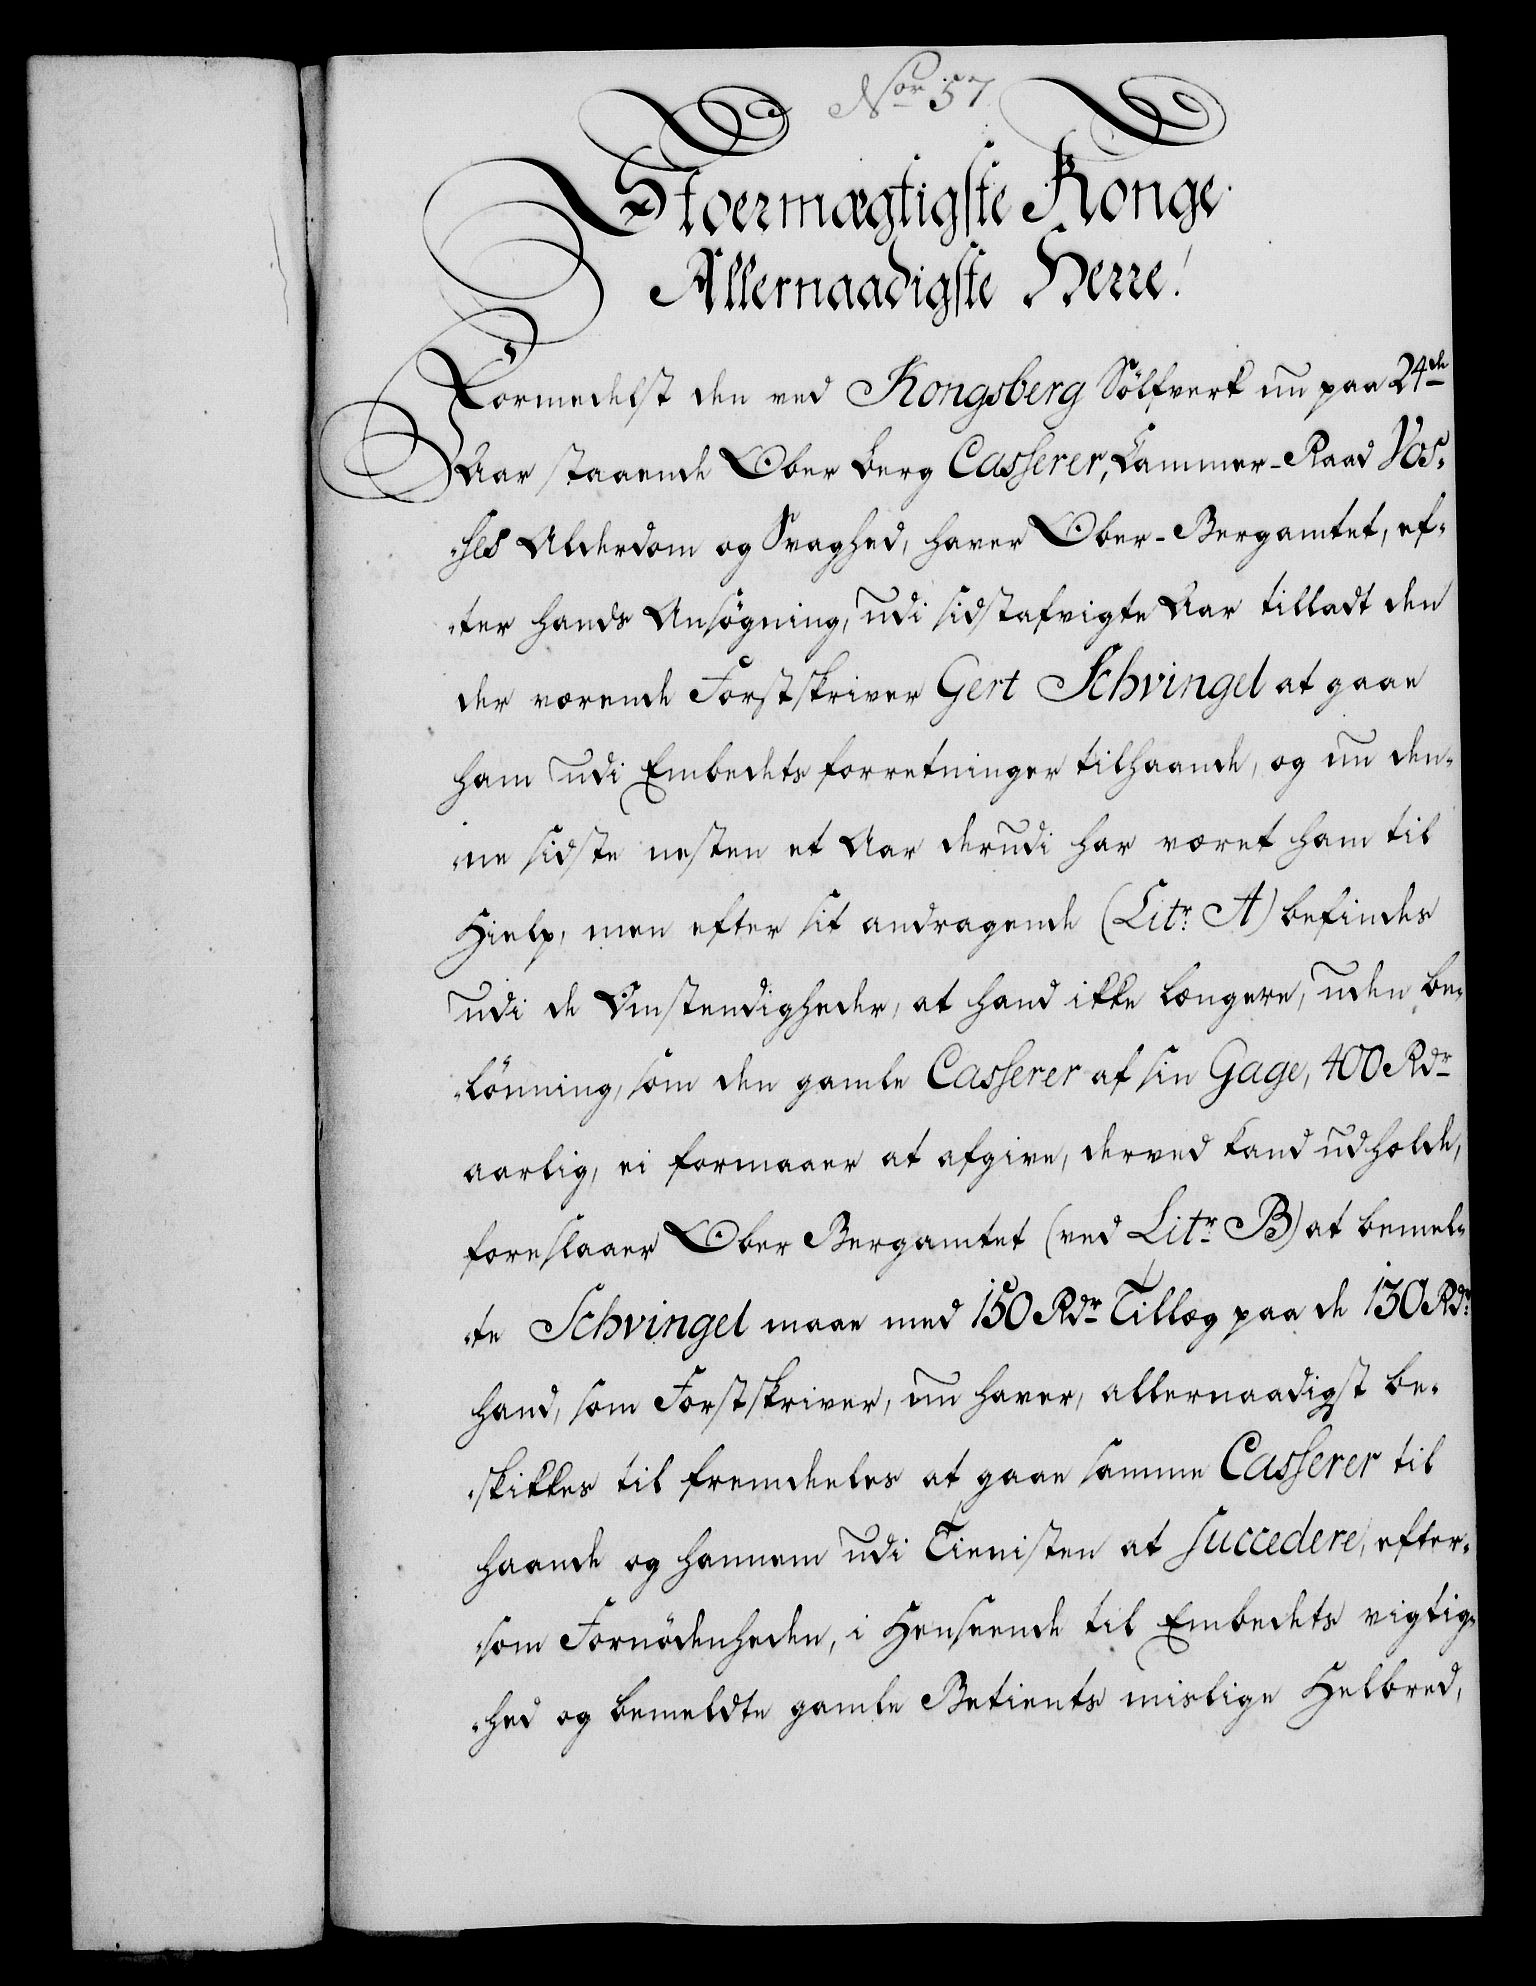 Nor 57
Stoermægtigste Konge
Allernaadigste Herre!
Formedelst den ved Kongsberg Sölfverk nu paa 24de
Aar staaende Ober Berg Casserer, Cammer-Raad Vos-
-ses Alderdom og Svaghed, haver Ober-Bergamtet, ef-
-ter hands Ansøgning, udi sidstafvigte Aar tilladt den
der værende Forstskriver Gert Schvingel at gaae
ham udi Embedets forretninger tilhaande, og nu den-
-ne sidste nesten et Aar derudi har været ham til
Hielp, men efter sit andragende (Litr. A) befindes
udi de Omstendigheder, at hand ikke længere, uden be-
-lönning, som den gamle Casserer af sin Gage, 400 Rdr
aarlig, ei formaaer at afgive, derved kand udholde,
foreslaaer Ober Bergamtet (ved Litr. B) at bemel-
-te Schvingel maae med 150 Rdr Tillæg paa de 150 Rdr
hand, som Forstskriver, nu haver, allernaadigst be-
-skikkes til fremdeeles at gaae samme Casserer til
haande og hannem udi Tienisten at succedere, efter-
-som Fornødenheden, i Henseende til Embedets vigtig-
-hed og bemeldte gamle Betients mislige Helbred,